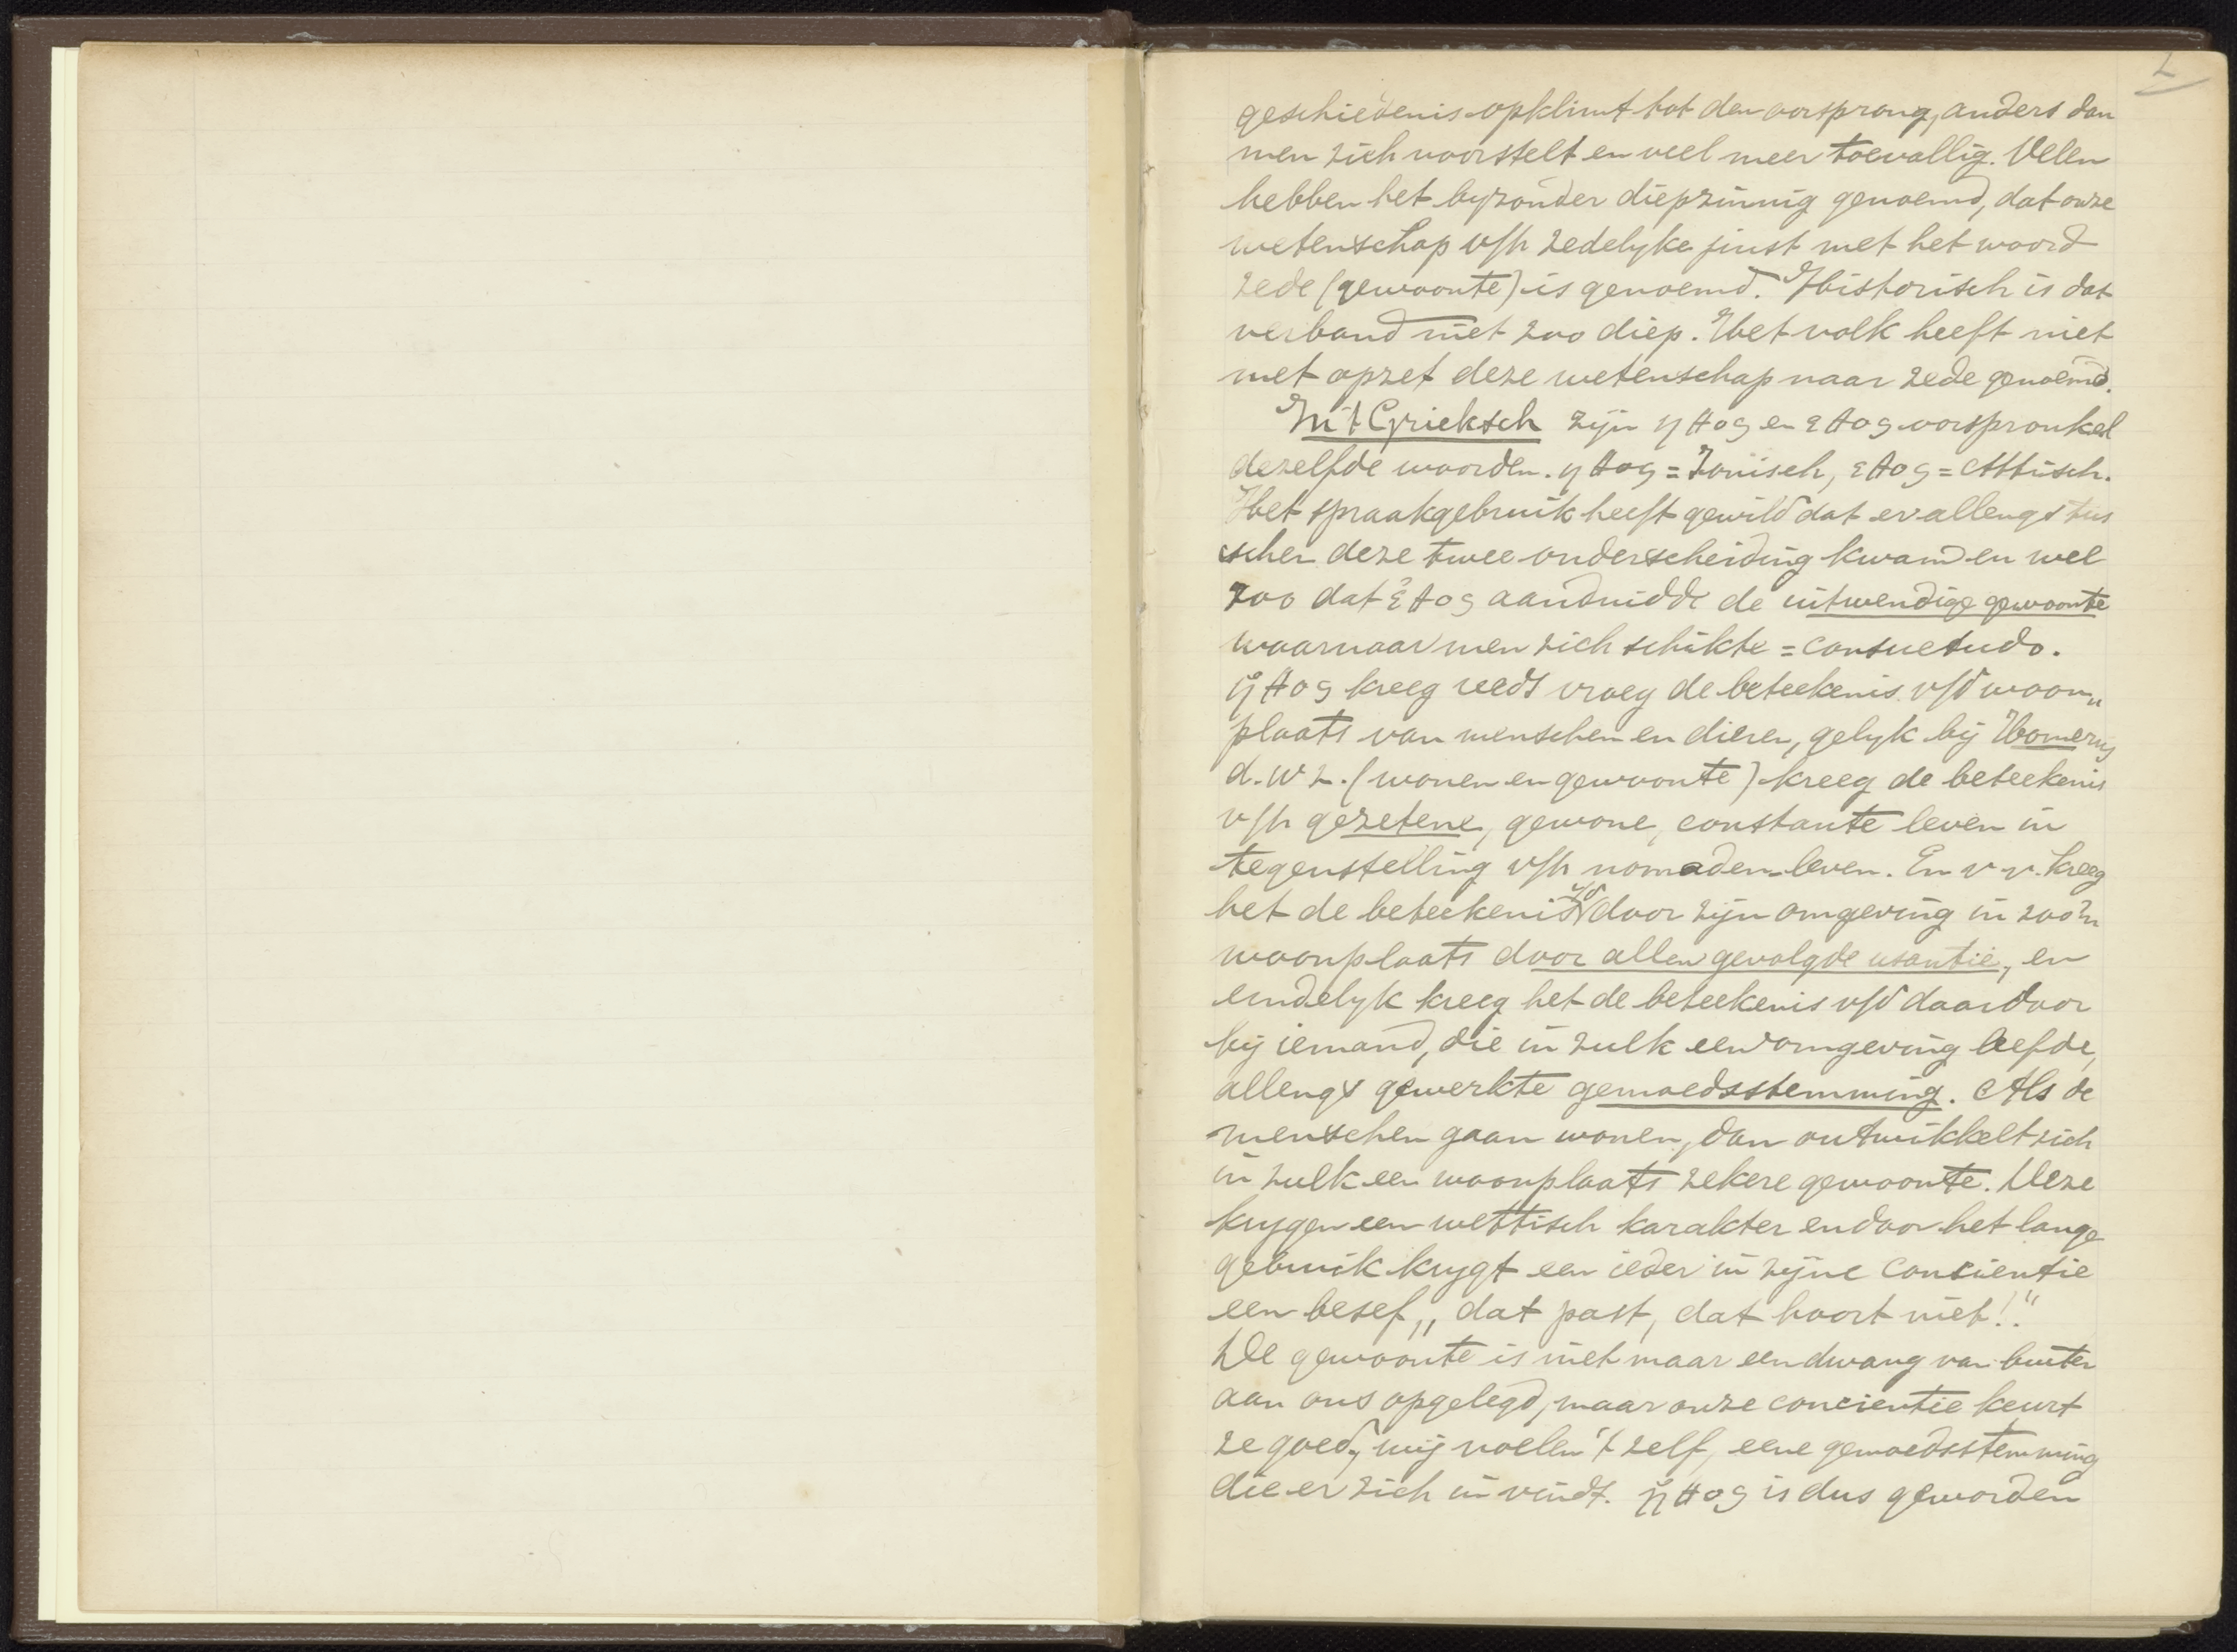 2
geschiedenis opklimt tot den oorsprong, anders dan
men zich voorstelt en veel meer toevallig. Velen
hebben het byzonder diepzinnig genoemd, dat onze
wetenschap v/h zedelyke juist met het woord
zede (gewoonte) is genoemd. Historisch is dat
verband niet zoo diep. Het volk heeft niet
met opzet deze wetenschap naar zede genoemd.
In 't Grieksch zijn ηθος en εθος oorspronkel
dezelfde woorden. ηθος = Ionisch, εθος = Attisch.
Het spraakgebruik heeft gewild dat er allengs tus
schen deze twee onderscheiding kwam en wel
zoo dat ἐθος aanduidde de uitwendige gewoonte
waarnaar men zich schikte = consuetudo.
ἠθος kreeg reeds vroeg de beteekenis v/d woon„
plaats van menschen en dieren, gelyk bij Homerus
d.w.z. (wonen en gewoonte) kreeg de beteekenis
v/h gezetene, gewone, constante leven in
tegenstelling v/h nomaden-leven. En v.v. kreeg
het de beteekenis v/d door zijn omgeving in zoo'n
woonplaats door allen gevolgde usantie, en
eindelyk kreeg het de beteekenis v/d daardoor
bij iemand, die in zulk een omgeving leefde,
allengs gewerkte gemoedsstemming. Als de
menschen gaan wonen, dan ontwikkelt zich
in zulk een woonplaats zekere gewoonte. Deze
krygen een wettisch karakter en door het lange
gebruik krygt een ieder in zijne conscientie
een besef „dat past, dat hoort niet!"
De gewoonte is niet maar een dwang van buiten
aan ons opgelegd, maar onze concientie keurt
ze goed, wij voelen 't zelf, eene gemoedsstemming
die er zich in vindt. ἠθος is dus geworden